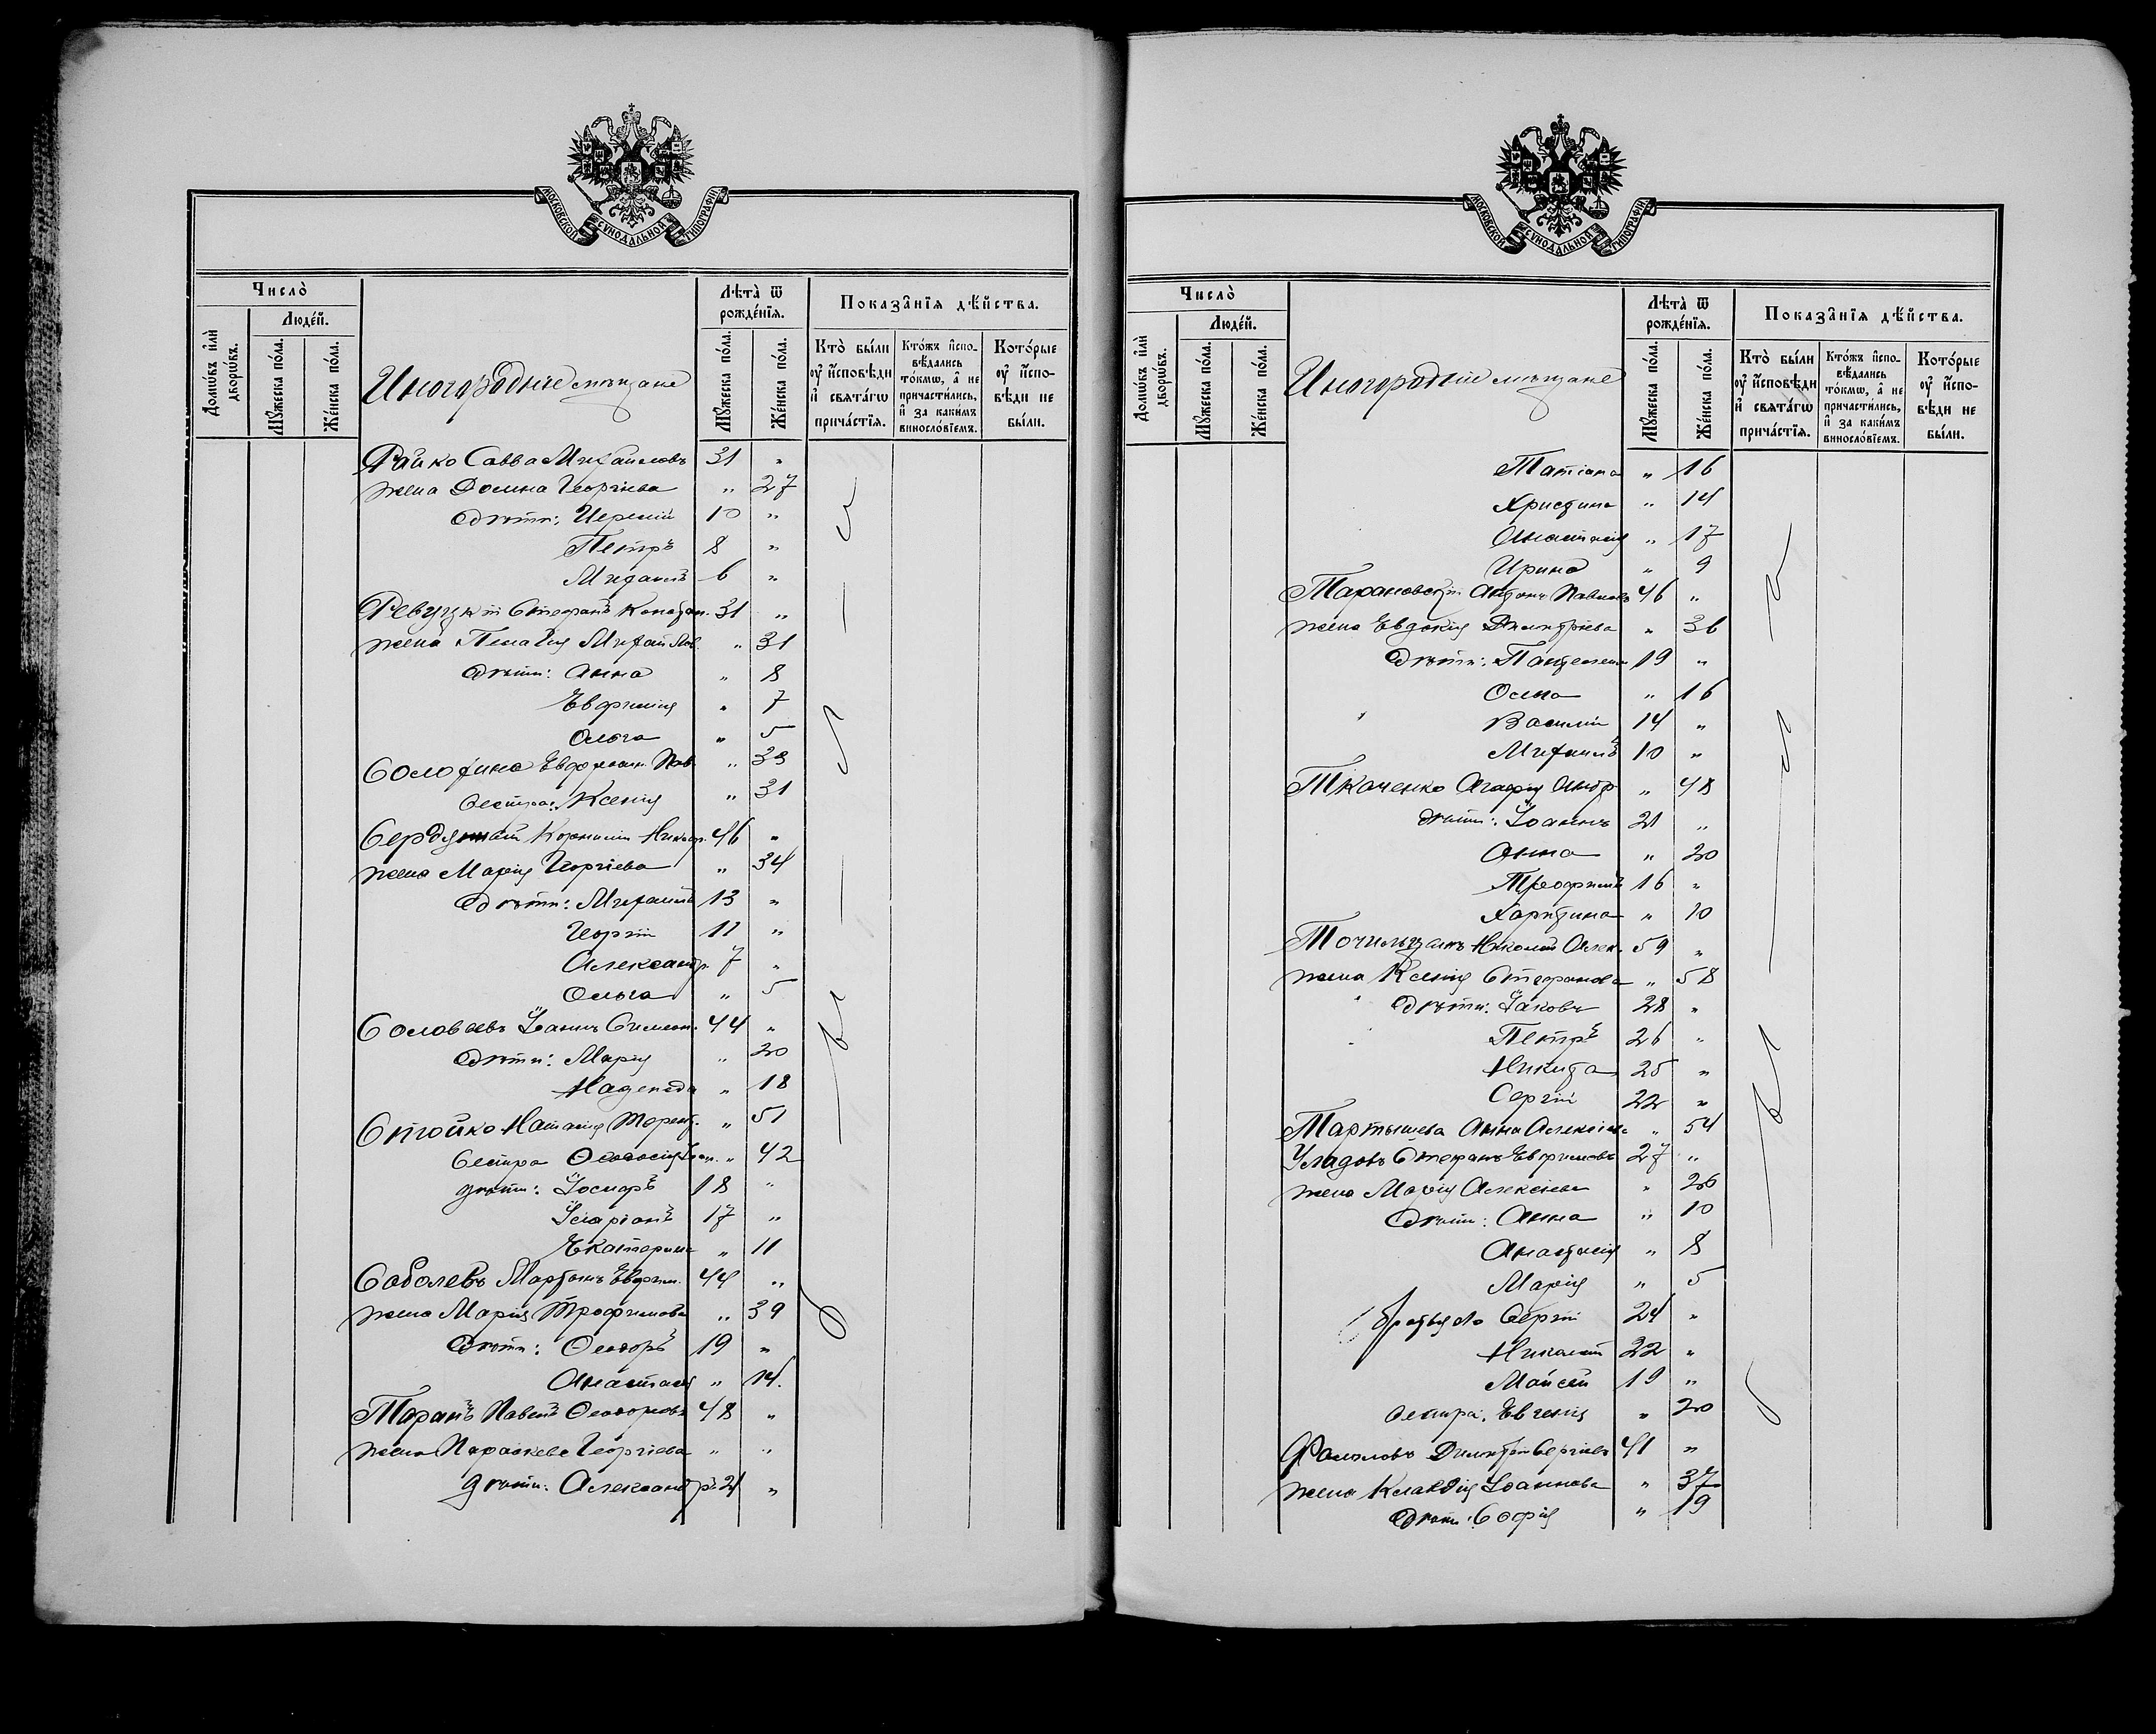 МОСКОВСКОЙ СѴНОДАЛЬНОЙ ТИПОГРАФІИ
Число̀
Люде́й.
Домѡ́въ и҆лѝ дворѡ́въ.
Мꙋ́жеска по́ла.
Же́нска по́ла.
Иногородные мѣщане
Лѣта̀ ѿ рожде́нїѧ.
Мꙋ́жеска по́ла.
Же́нска по́ла.
Показа̑нїѧ дѣ́йства.
Кто̀ бы́ли ᲂу҆ и҆́сповѣди и҆ свѧта́гѡ прича́стїѧ.
Кто́жъ и҆спо-вѣ́дались то́кмѡ, а҆ не причасти́лись, и҆ за каки́мъ винословїемъ.
Кото́рые ᲂу҆ и҆́спо-вѣди не бы́ли.
Райко Савва Михаиловъ 31 "
жена Домна Георгіева " 27
дѣти: Иеремій 10 "
Петръ 8 "
Михаилъ 6 "
Ревуцкій Стефанъ Констан. 31 "
жена Пелагія Михайлов. " 31
дѣти: Анна " 8
Евфимія " 7
Ольга " 5
Солохина Евфросин. Пав. " 33
Сестра: Ксенія " 31
Корнилій Никиф. 46 "
жена Марія Георгіева " 34
дѣти: Михаилъ 13 "
Георгій 11 "
Александр. 7 "
Ольга " 5
Соловьевъ Іоаннъ Симеон. 44 "
дѣти: Марія " 20
Надежда " 18
Стойко Наталія Терент. " 51
Сестра Ѳеодосія Іоан. " 42
дѣти: Іосифъ 18 "
17 "
Екатерина " 11
Соболевъ Мартинъ Евфим. 44 "
жена Марія Трофимова " 39
дѣти: Ѳеодоръ 19 "
Анастасія " 14.
Таранъ Павелъ Ѳеодоровъ 48 "
жена Параскева Георгіева " "
дѣти: Александръ 21 "
МОСКОВСКОЙ СѴНОДАЛЬНОЙ ТИПОГРАФІИ
Число̀
Люде́й.
Домѡ́въ и҆лѝ дворѡ́въ.
Мꙋ́жеска по́ла.
Же́нска по́ла.
Иногородные мѣщане
Лѣта̀ ѿ рожде́нїѧ.
Мꙋ́жеска по́ла.
Же́нска по́ла.
Показа̑нїѧ дѣ́йства.
Кто̀ бы́ли ᲂу҆ и҆́сповѣди и҆ свѧта́гѡ прича́стїѧ.
Кто́жъ и҆спо-вѣ́дались то́кмѡ, а҆ не причасти́лись, и҆ за каки́мъ винословїемъ.
Кото́рые ᲂу҆ и҆́спо-вѣди не бы́ли.
Татіана " 16
Христина " 14
Анастасія " 17
Ирина " 9
Тарановскій Антонъ Павловъ 46 "
жена Евдокія Димитріева " 36
дѣти: Пантелеим. 19 "
Олена " 16
Василій 14 "
Михаилъ 10 "
Ткаченко Агафія Андр. " 48
дѣти: Іоаннъ 21 "
Анна " 20
Трофимъ 16 "
Харитина " 10
Точильцанъ Николай Алек. 59 "
жена Ксенія Стефанова " 58
дѣти: Іаковъ 28 "
Петръ 26 "
Никита 25 "
Сергій 22 "
Мартышева Анна Алексіева " 54
Усладовъ Стефанъ Евфимовъ 27 "
жена Марія Алексіева " 26
дѣти: Анна " 10
Анастасія " 8
Марія " 5
братья его Сергій 24 "
Николай 22 "
Моисей 19 "
сестра: Евгенія " 20
Димитрій Сергіевъ 41 "
жена Клавдія Іоаннова " 37
дѣти: Софія " 19